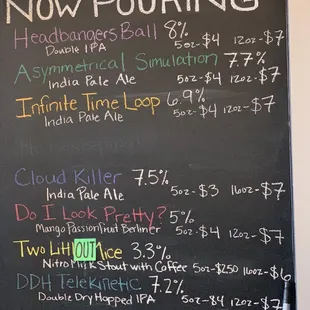 NOW POURING
Headbangers Ball 8%
Double IPA 5oz-$4 12oz-$7
Asymmetrical Simulation 7.7%
India Pale Ale 5oz-$4 12oz-$7
Infinite Time Loop 6.9%
India Pale Ale 5oz-$4 12oz-$7
Cloud Killer 7.5%
India Pale Ale 5oz-$3 16oz-$7
Do I Look Pretty? 5%
Mango Passionfruit Berliner 5oz-$4 12oz-$7
Two Lit OUT Nice 3.3%
Nitro Milk Stout with Coffee 5oz-$2.50 16oz-$6
DDH Telekinetic 7.2%
Double Dry Hopped IPA 5oz-$4 12oz-$7